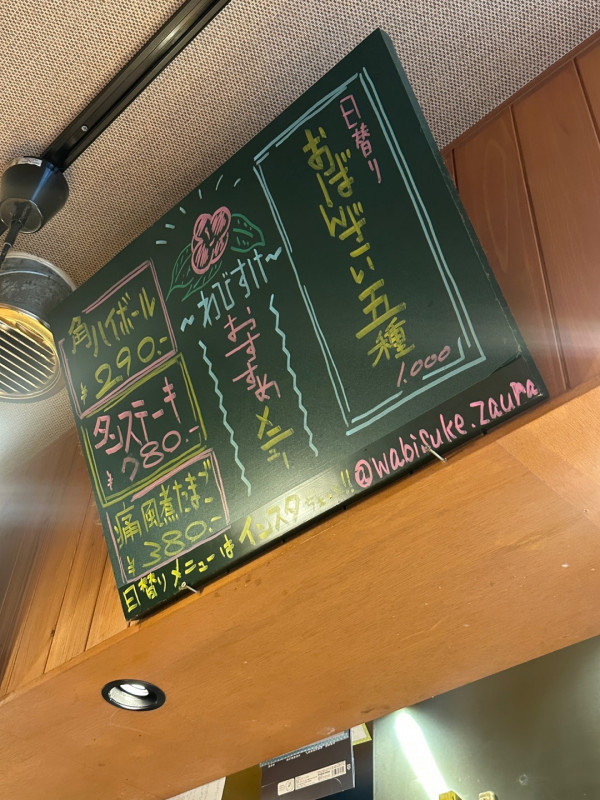 日替り
おばんざい五種
1,000
~わびすけ~
おすすめ
メニュー
角ハイボール
¥290.-
タンステーキ
¥780.-
痛風煮たまご
¥380.-
日替りメニューは インスタ !! @wabisuke.zauma